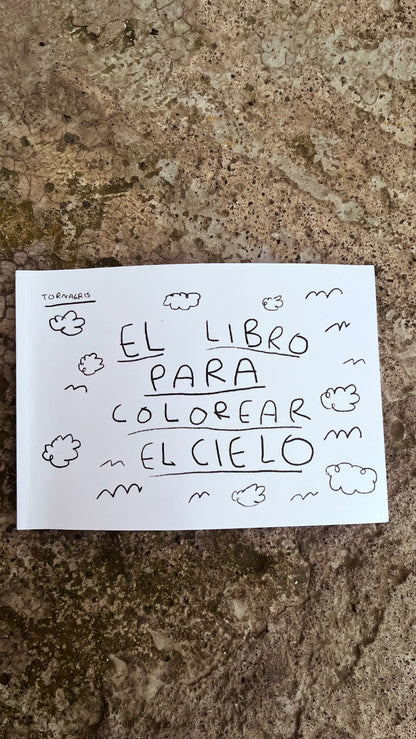 TORNAGRIS
EL LIBRO
PARA
COLOREAR
EL CIELO